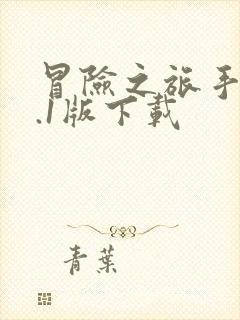 冒險之旅手
.1版下載
青葉